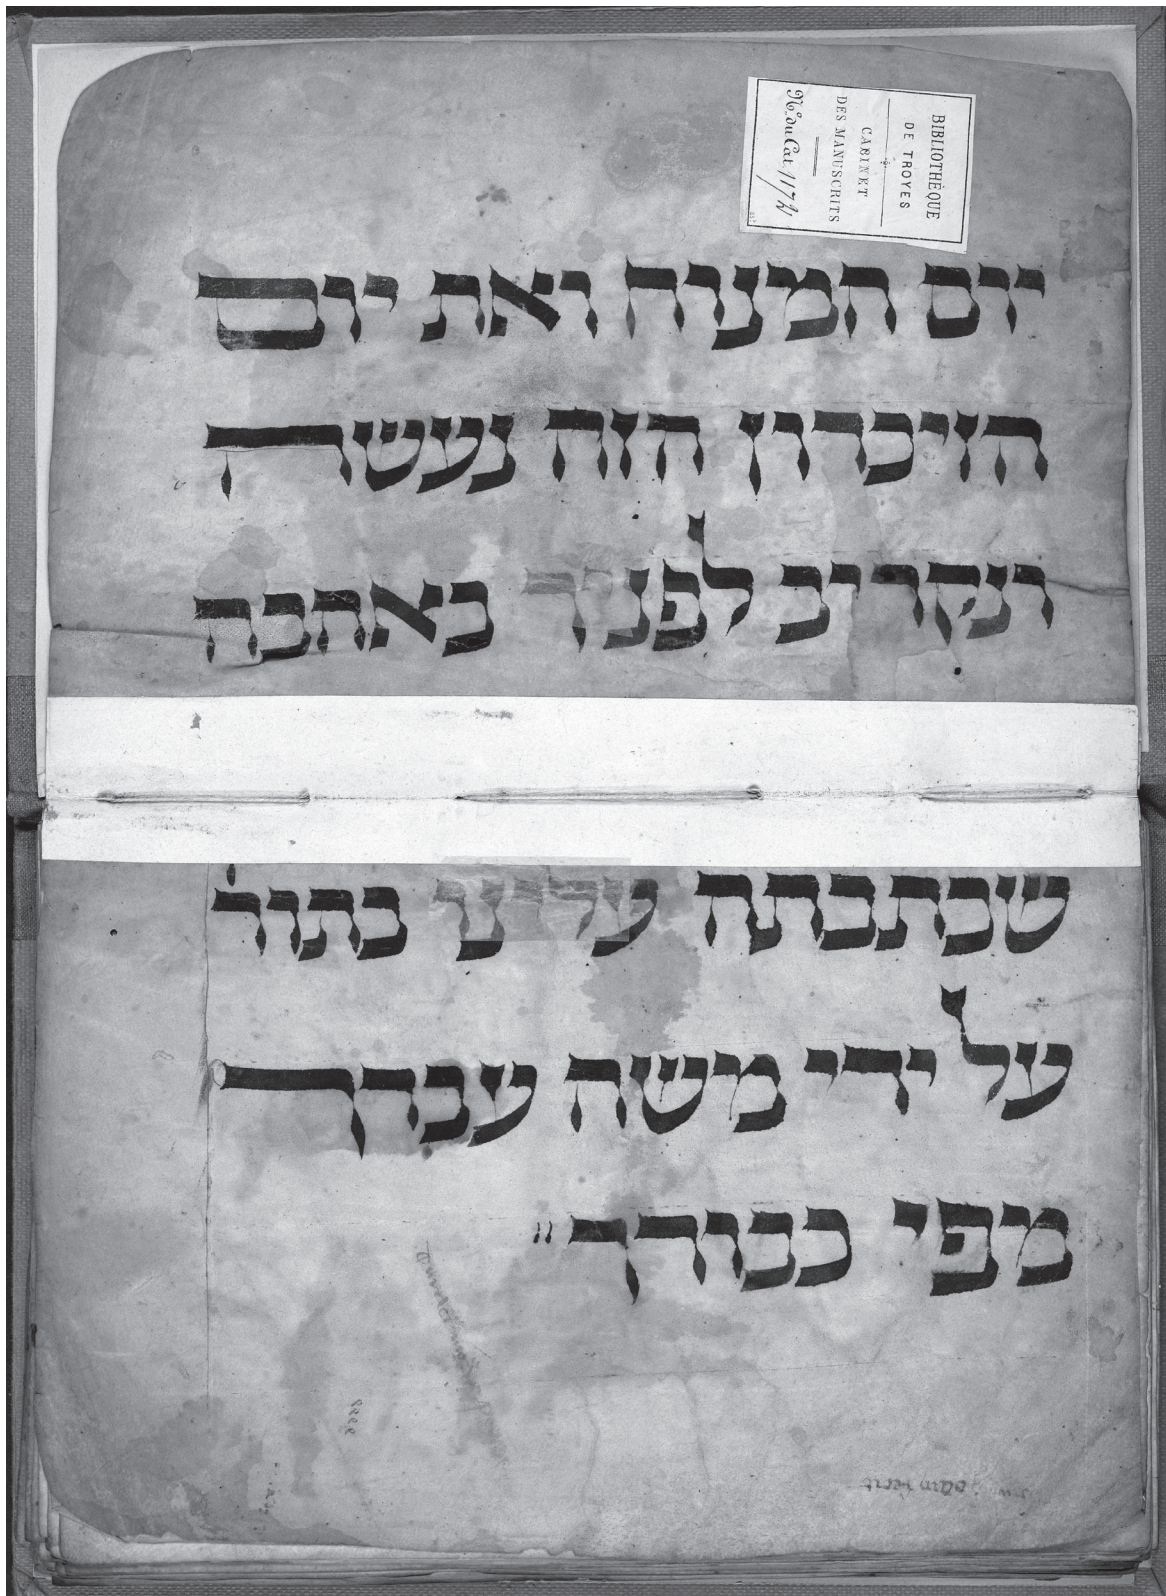 BIBLIOTHÈQUE
DE TROYES
CABINET
DES MANUSCRITS
No. du Cat. 1172
יום המנוח ואת יום
הזיכרון הזה נעשה
ונקריב לפניך באהבה
שכתבתה עלינו בתור׳
על ידי משה עבדך
מפי כבודך